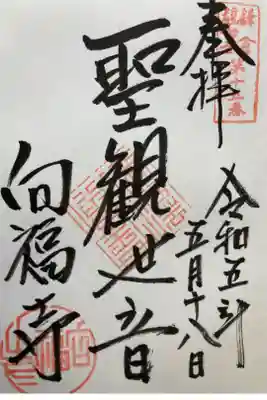 奉拝
令和五年
五月十八日
聖観世音
向福寺